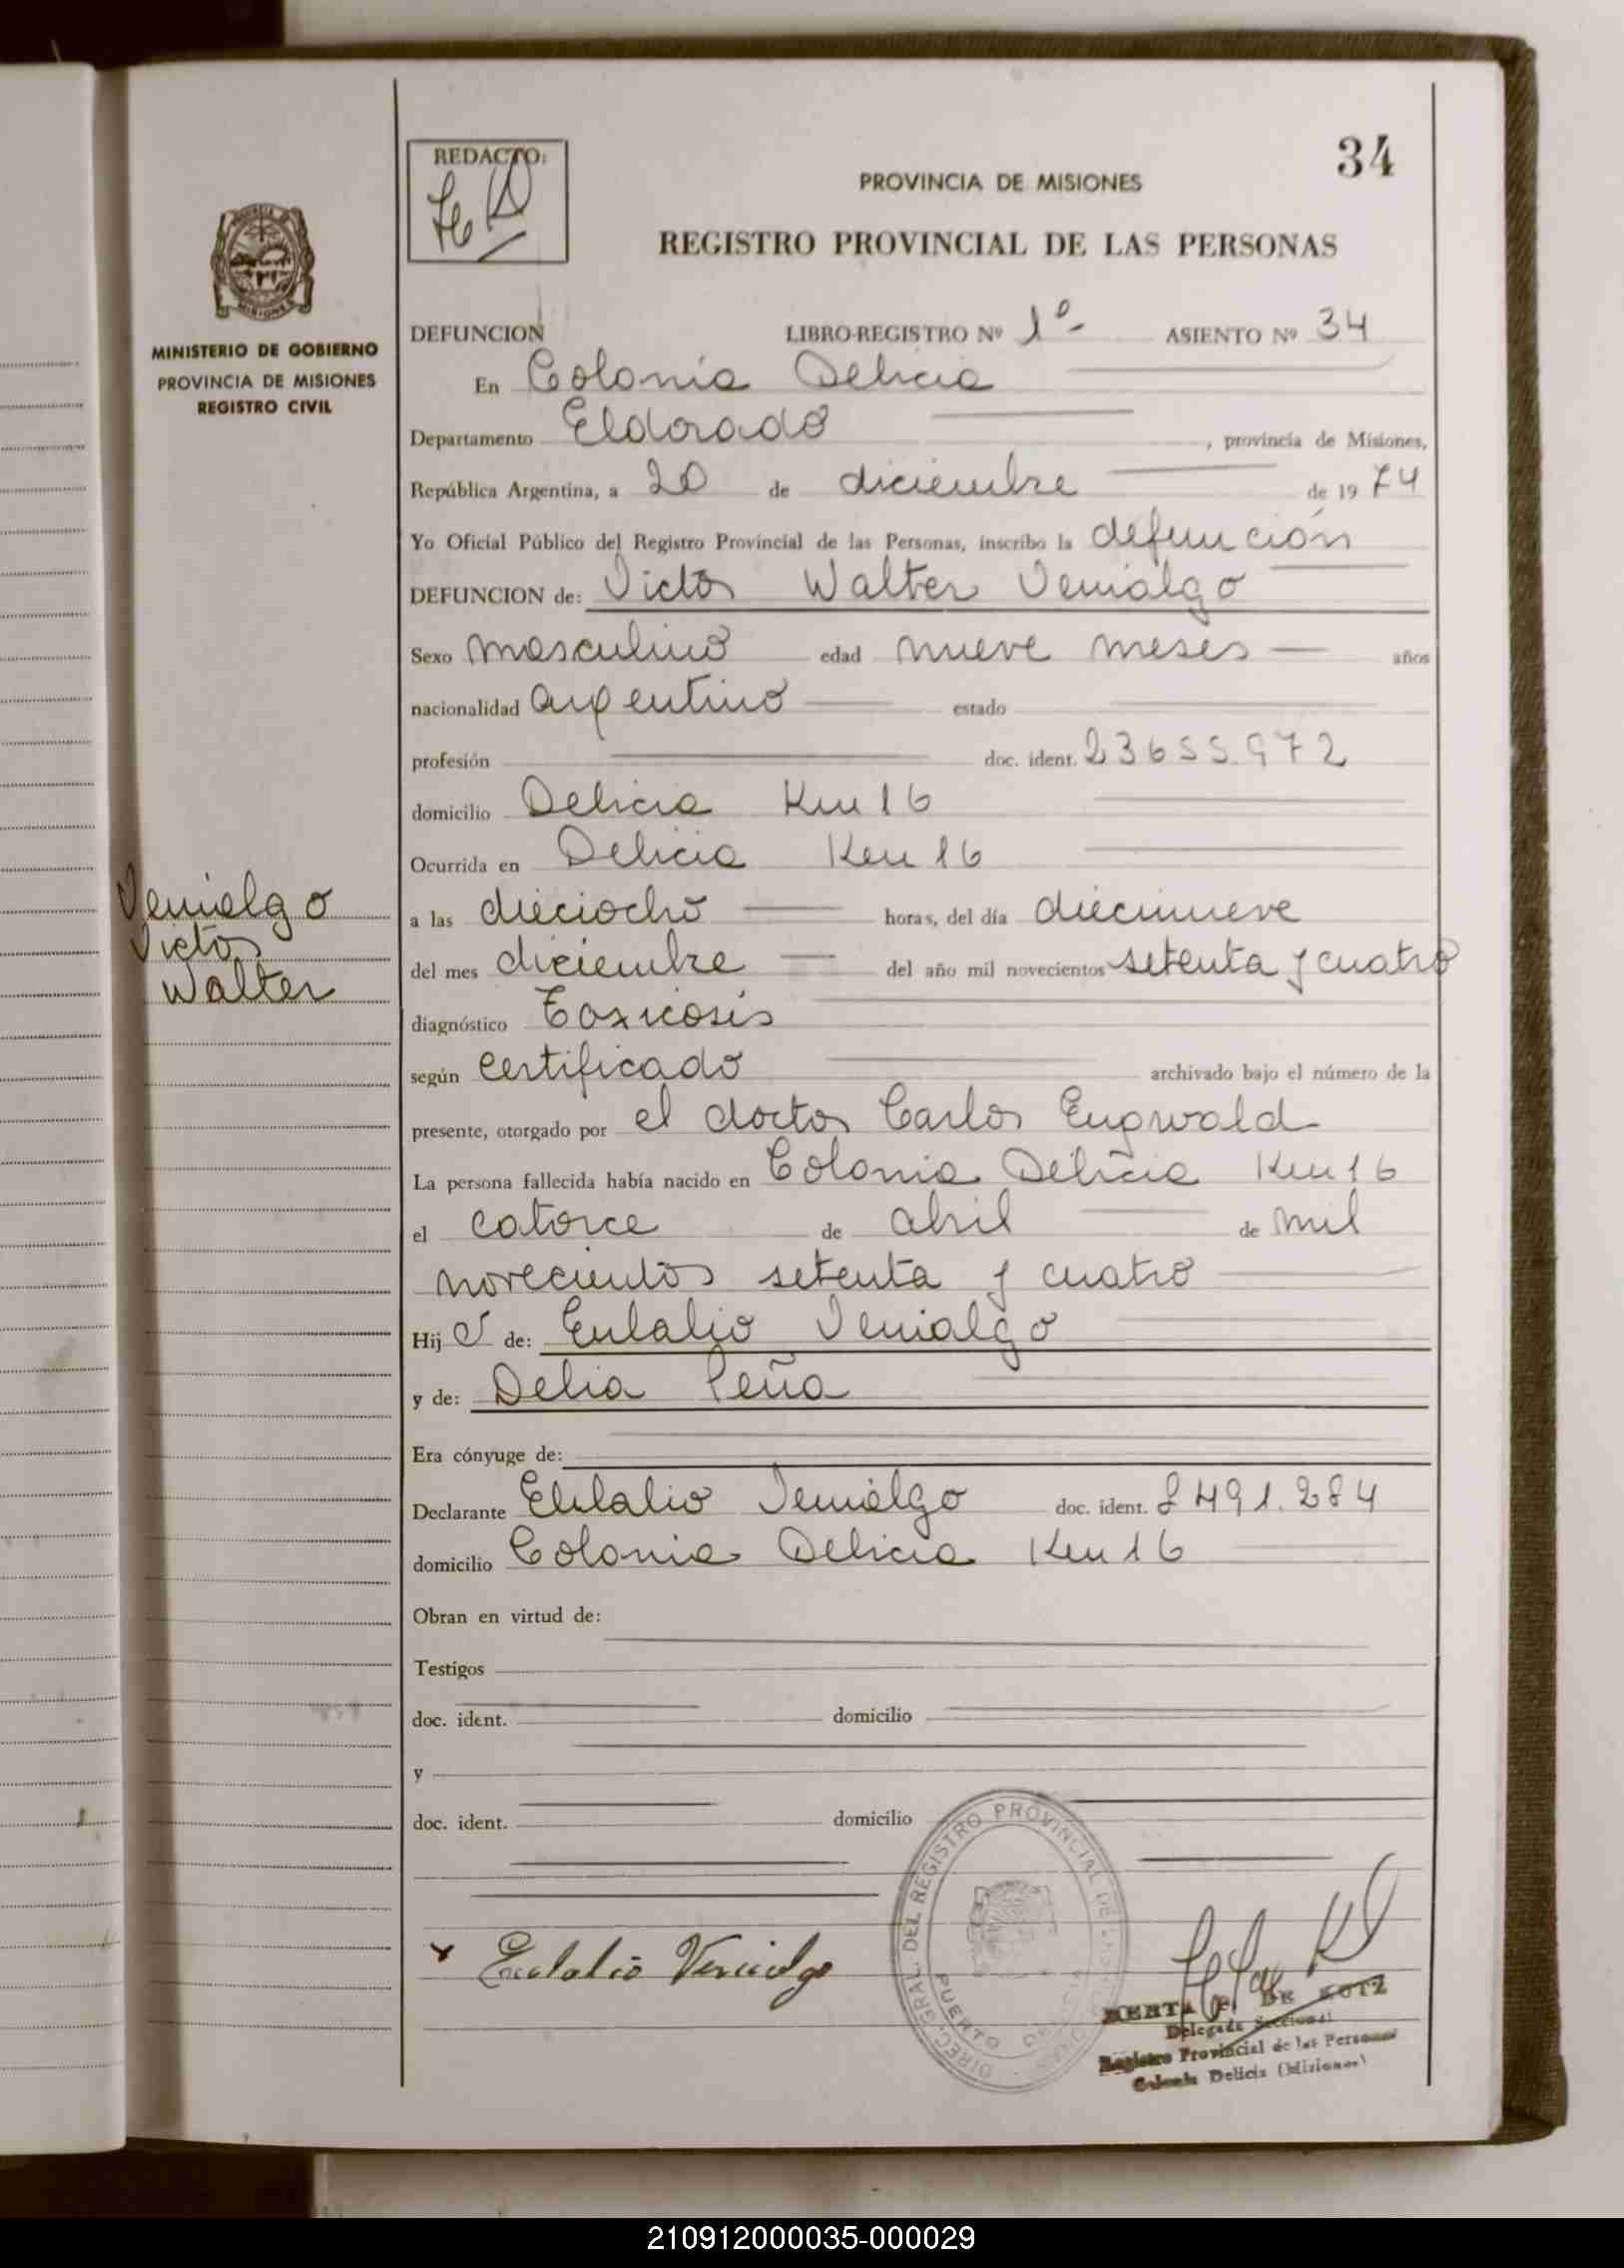 34
REDACTO:
PROVINCIA DE MISIONES
REGISTRO PROVINCIAL DE LAS PERSONAS
MINISTERIO DE GOBIERNO
PROVINCIA DE MISIONES
REGISTRO CIVIL
DEFUNCION LIBRO-REGISTRO Nº 1º- ASIENTO Nº 34
En Colonia Delicia
Departamento Eldorado, provincia de Misiones,
República Argentina, a 20 de diciembre de 19 74
Yo Oficial Público del Registro Provincial de las Personas, inscribo la defunción
DEFUNCION de: Victor Walter Venialgo
Sexo masculino edad nueve meses años
nacionalidad argentino estado
profesión doc. ident. 23655.972
domicilio Delicia Km 16
Ocurrida en Delicia Km 16
Venialgo
Victor
Walter
a las dieciocho horas, del día diecinueve
del mes diciembre del año mil novecientos setenta y cuatro
diagnóstico Toxicosis
según certificado archivado bajo el número de la
presente, otorgado por el doctor Carlos
La persona fallecida había nacido en Colonia Delicia Km 16
el catorce de abril de mil
novecientos setenta y cuatro
Hijo de: Eulalio Venialgo
y de: Delia Peña
Era cónyuge de:
Declarante Eulalio Venialgo doc. ident. 8491.284
domicilio Colonia Delicia Km 16
Obran en virtud de:
Testigos
doc. ident. domicilio
y
doc. ident. domicilio
DIREC. GRAL. DEL REGISTRO PROVINCIAL DE LAS PERSONAS
PUERTO DELICIA
Eulalio Venialgo
BERTA DE KOTZ
Delegada Seccional
Registro Provincial de las Personas
Colonia Delicia (Misiones)
210912000035-000029